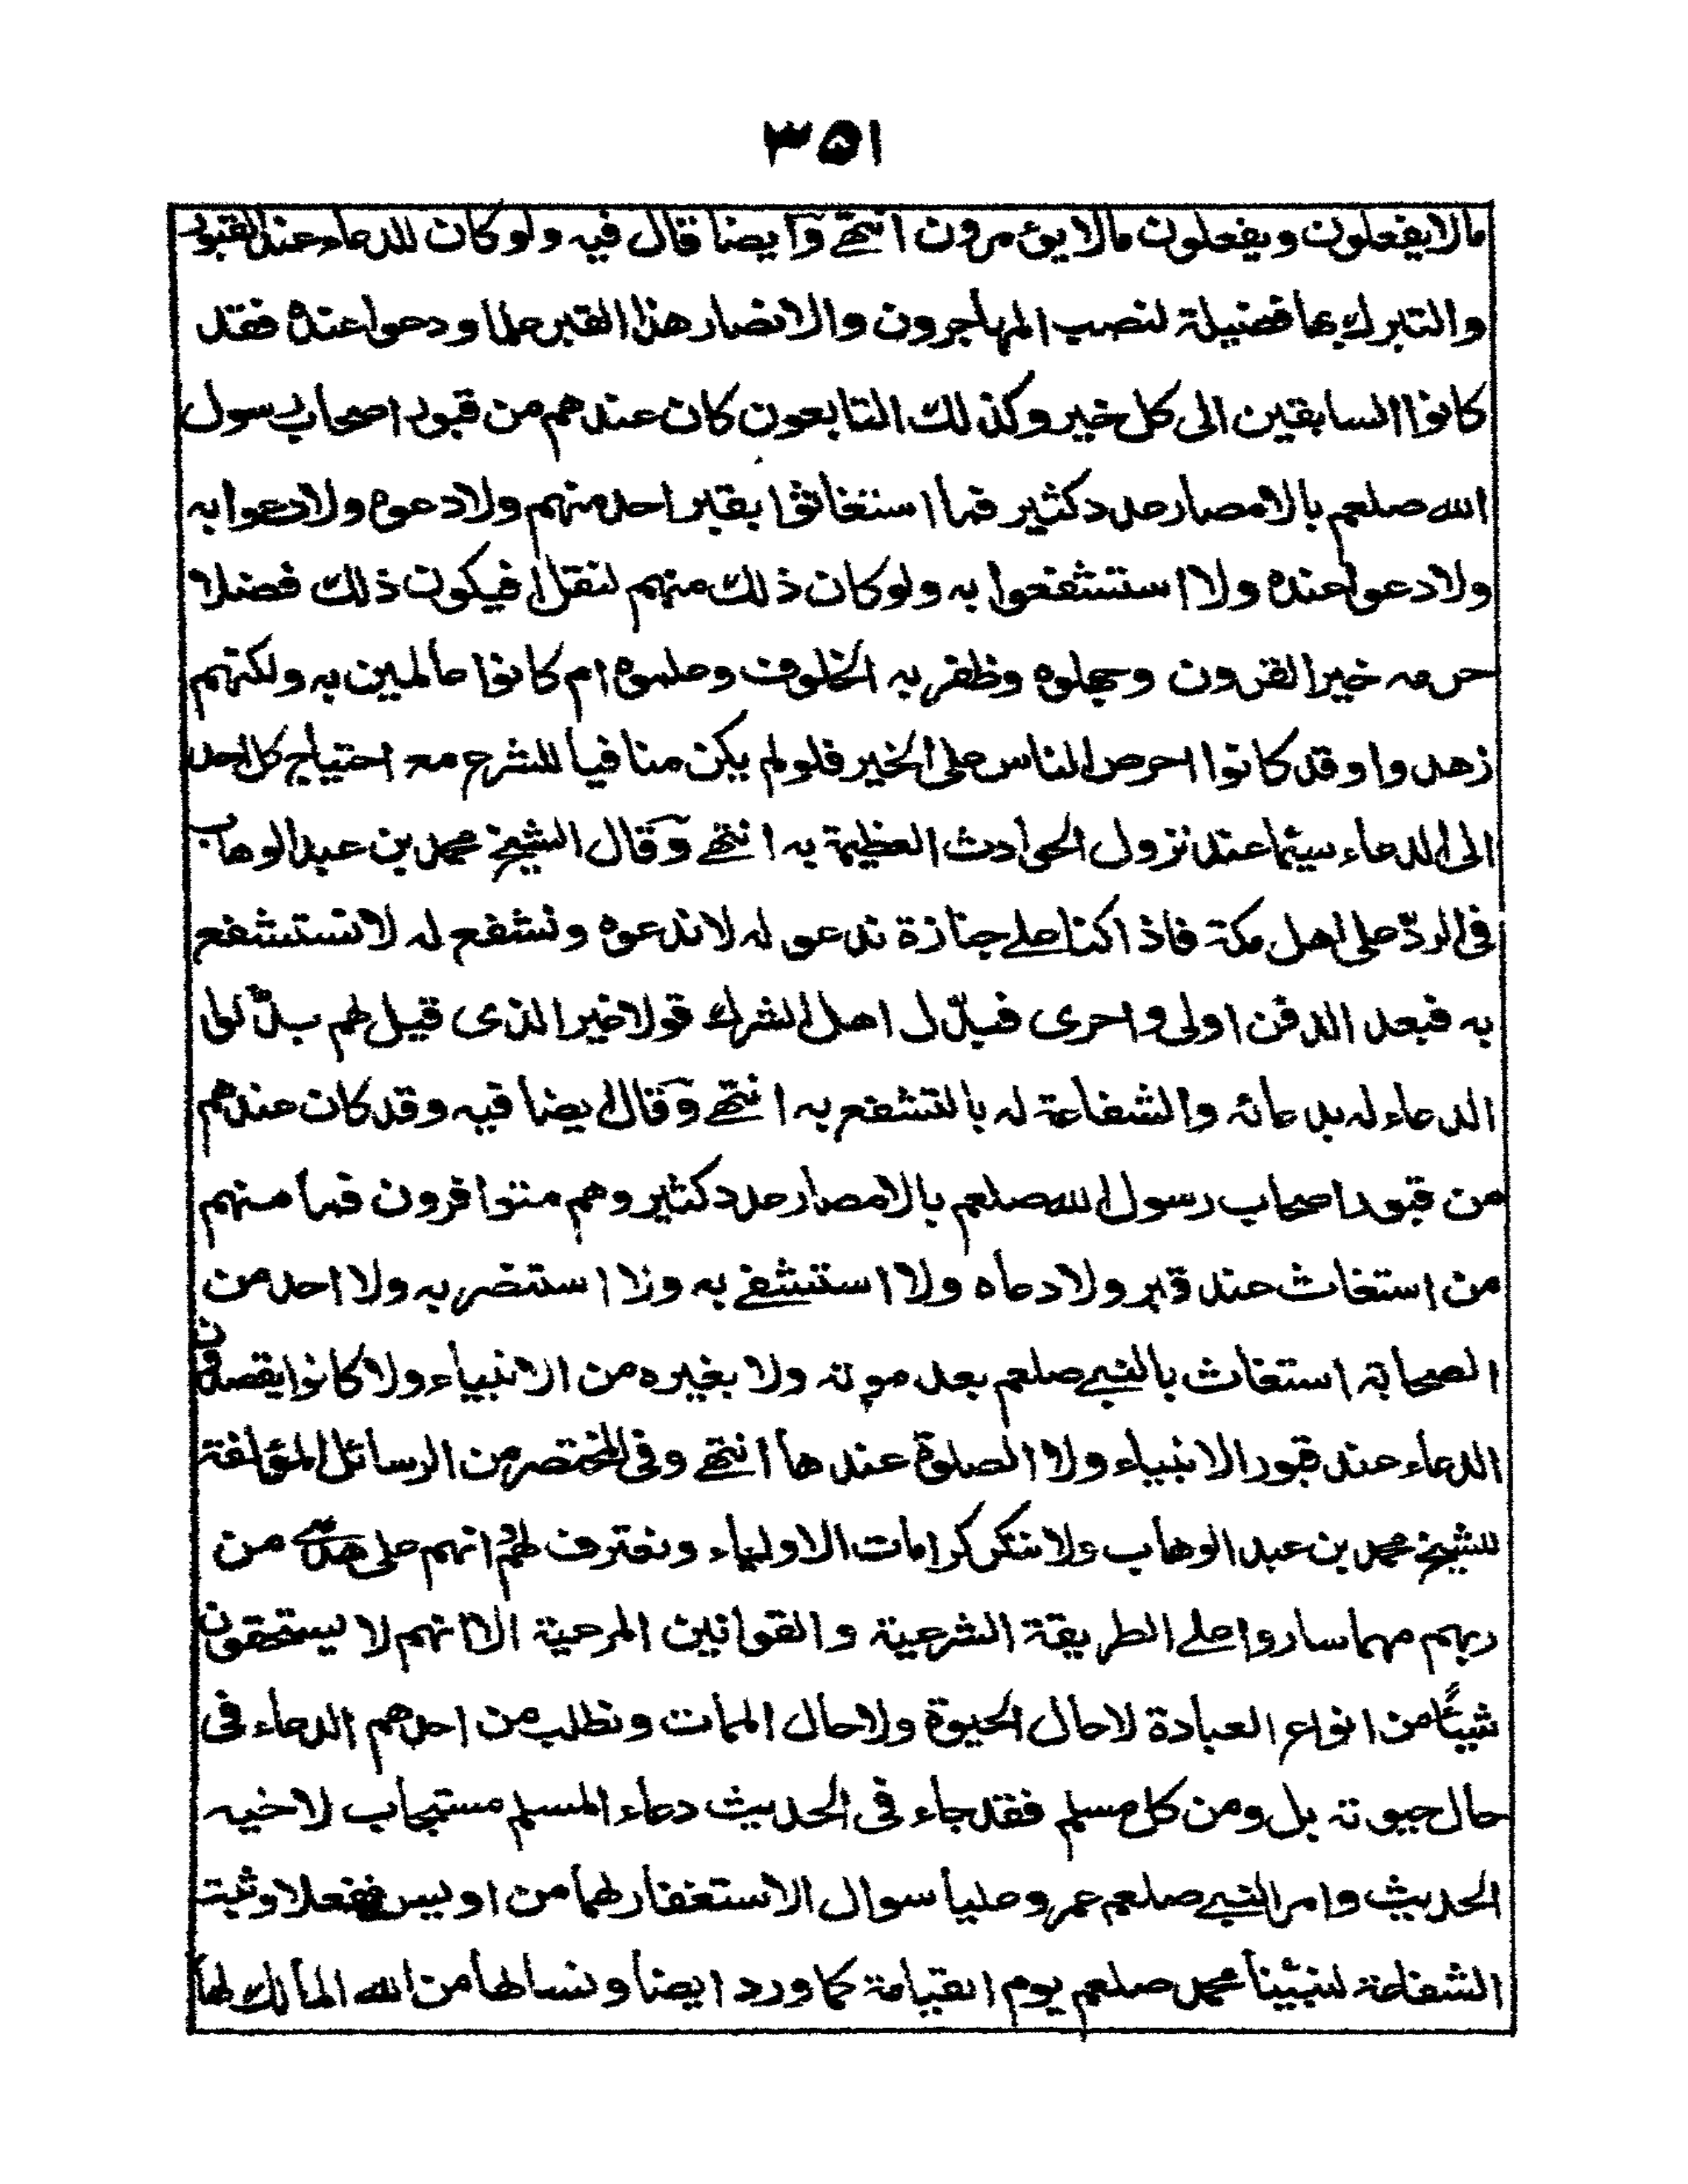 ٣٥١
ما لا يفعلون ويفعلون ما لا يؤمرون انتهى وايضا قال فيه ولو كان للدعاء عند القبور
والتبرك بها فضيلة لنصب المهاجرون والانصار هذا القبر علما ودعوا عنده فقد
كانوا السابقين الى كل خير وكذلك التابعون كان عندهم من قبور اصحاب رسول
الله صلعم بالامصار عدد كثير فما استغاثوا بقبر احد منهم ولا دعوه ولا دعوا به
ولا دعوا عنده ولا استشفعوا به ولو كان ذلك منهم لنقل افيكون ذلك فضلا
حرمه خير القرون وجهلوه وظفر به الخلوف وعلموه ام كانوا عالمين به ولكنهم
زهدوا وقد كانوا احرص الناس على الخير فلو لم يكن منافيا للشرع مع احتياج كل احد
الى الدعاء سيما عند نزول الحوادث العظيمة به انتهى وقال الشيخ محمد بن عبد الوهاب
فى الردّ على اهل مكة فاذا كنا على جنازة ندعو له لا ندعوه ونشفع له لا نستشفع
به فبعد الدفن اولى واحرى فبدّل اهل الشرك قولا غير الذى قيل لهم بدّلوا
الدعاء له بدعائه والشفاعة له بالتشفع به انتهى وقال ايضا فيه وقد كان عندهم
من قبور اصحاب رسول الله صلعم بالامصار عدد كثير وهم متوافرون فما منهم
من استغاث عند قبر ولا دعاه ولا استشفى به ولا استنصر به ولا احد من
الصحابة استغاث بالنبى صلعم بعد موته ولا بغيره من الانبياء ولا كانوا يقصدون
الدعاء عند قبور الانبياء ولا الصلوة عندها انتهى وفى المختصر من الرسائل المؤلفة
للشيخ محمد بن عبد الوهاب ولا ننكر كرامات الاولياء ونعترف لهم انهم على هدًى من
ربهم مهما ساروا على الطريقة الشرعية والقوانين المرعية الا انهم لا يستحقون
شيئًا من انواع العبادة لا حال الحيوة ولا حال الممات ونطلب من احدهم الدعاء فى
حال حيوته بل ومن كل مسلم فقد جاء فى الحديث دعاء المسلم مستجاب لاخيه
الحديث وامر النبى صلعم عمر وعليا سوال الاستغفار لهما من اويس ففعلا وثبت
الشفاعة لنبينا محمد صلعم يوم القيامة كما ورد ايضا ونسالها من الله المالك لها